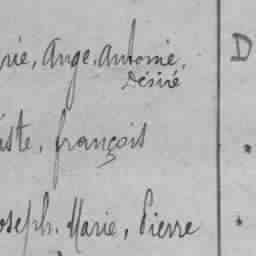 rie, Ange, Antoine, D
Désiré
iste, françois "
oseph, Marie, Pierre "